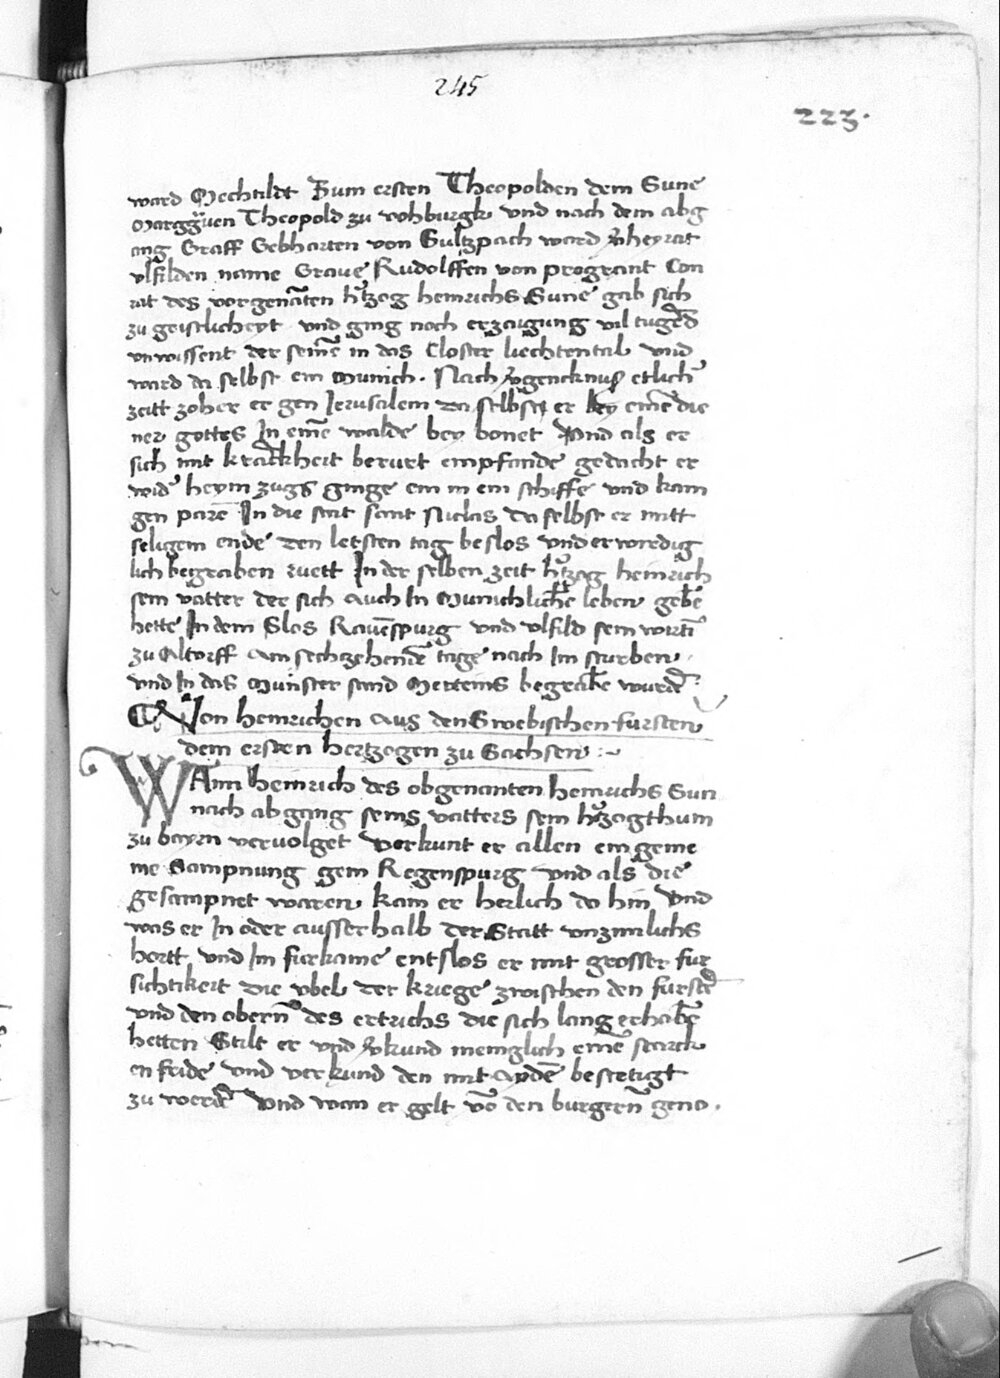 245
223.
ward Mechtildt Zum ersten Theopolden dem Sune
Marggrauen Theopold zu vohburgk vnd nach dem abg
ang Graff Gebharten von Sultzpach ward v̄heyrat
vlfilden name Graue Rudolffen von progrant Con
rat des vorgenāten h'tzog heinrichs Sune gab sich
zu geistlicheyt vnd ging noch erzaigung vil tugēd
vnwissent der seinē in das Closter liechtental vnd
ward da selbst ein Munich. Nach v̄gencknuß etlich'
zeitt zoher er gen Jerusalem da selbst er bey einē die
ner gottes In einē walde bey bonet Vnd als er
sich mit kranckheit berurt empfande gedacht er
wid' heym zugs ginge ein in ein schiffe vnd kam
gen parē In die stat sant Niclas da selbst er mitt
seligem ende den letsten tag beslos vnd erwirdig
lich begraben ruett In der selben zeit h'tzog heinrich
sein vatter der sich auch In Munichlichē leben gebē
hette In dem Slos Rauēspurg vnd vlfild sein wirtī
zu Altorff am sechzehendē tage nach Im sturben
vnd In das Munster sand Merteins begrabē wurdē
Von heinrichen aus den Swebischen fursten
dem ersten hertzogen zu Sachsen
WAnn heinrich des obgenanten heinrichs Sun
nach abgang seins vatters sein h'tzogthum
zu bayrn vervolget verkunt er allen ein geme
ine Sampnung gein Regenspurg vnd als die
gesampnet waren kam er herlich do hin vnd
was er In oder ausserhalb der Statt vnzimlichs
hortt vnd Im furkame entslos er mit grosser fur
sichtikeit die vbel der kriege zwischen den furstē
vnd den obern des ertrichs die sich lang erhabē
hetten Stilt er vnd v̄kund meniglich einē starck
en fride vnd verkund den mit aydē bestetigt
zu werdē vnd wan er gelt vō den burgern geno